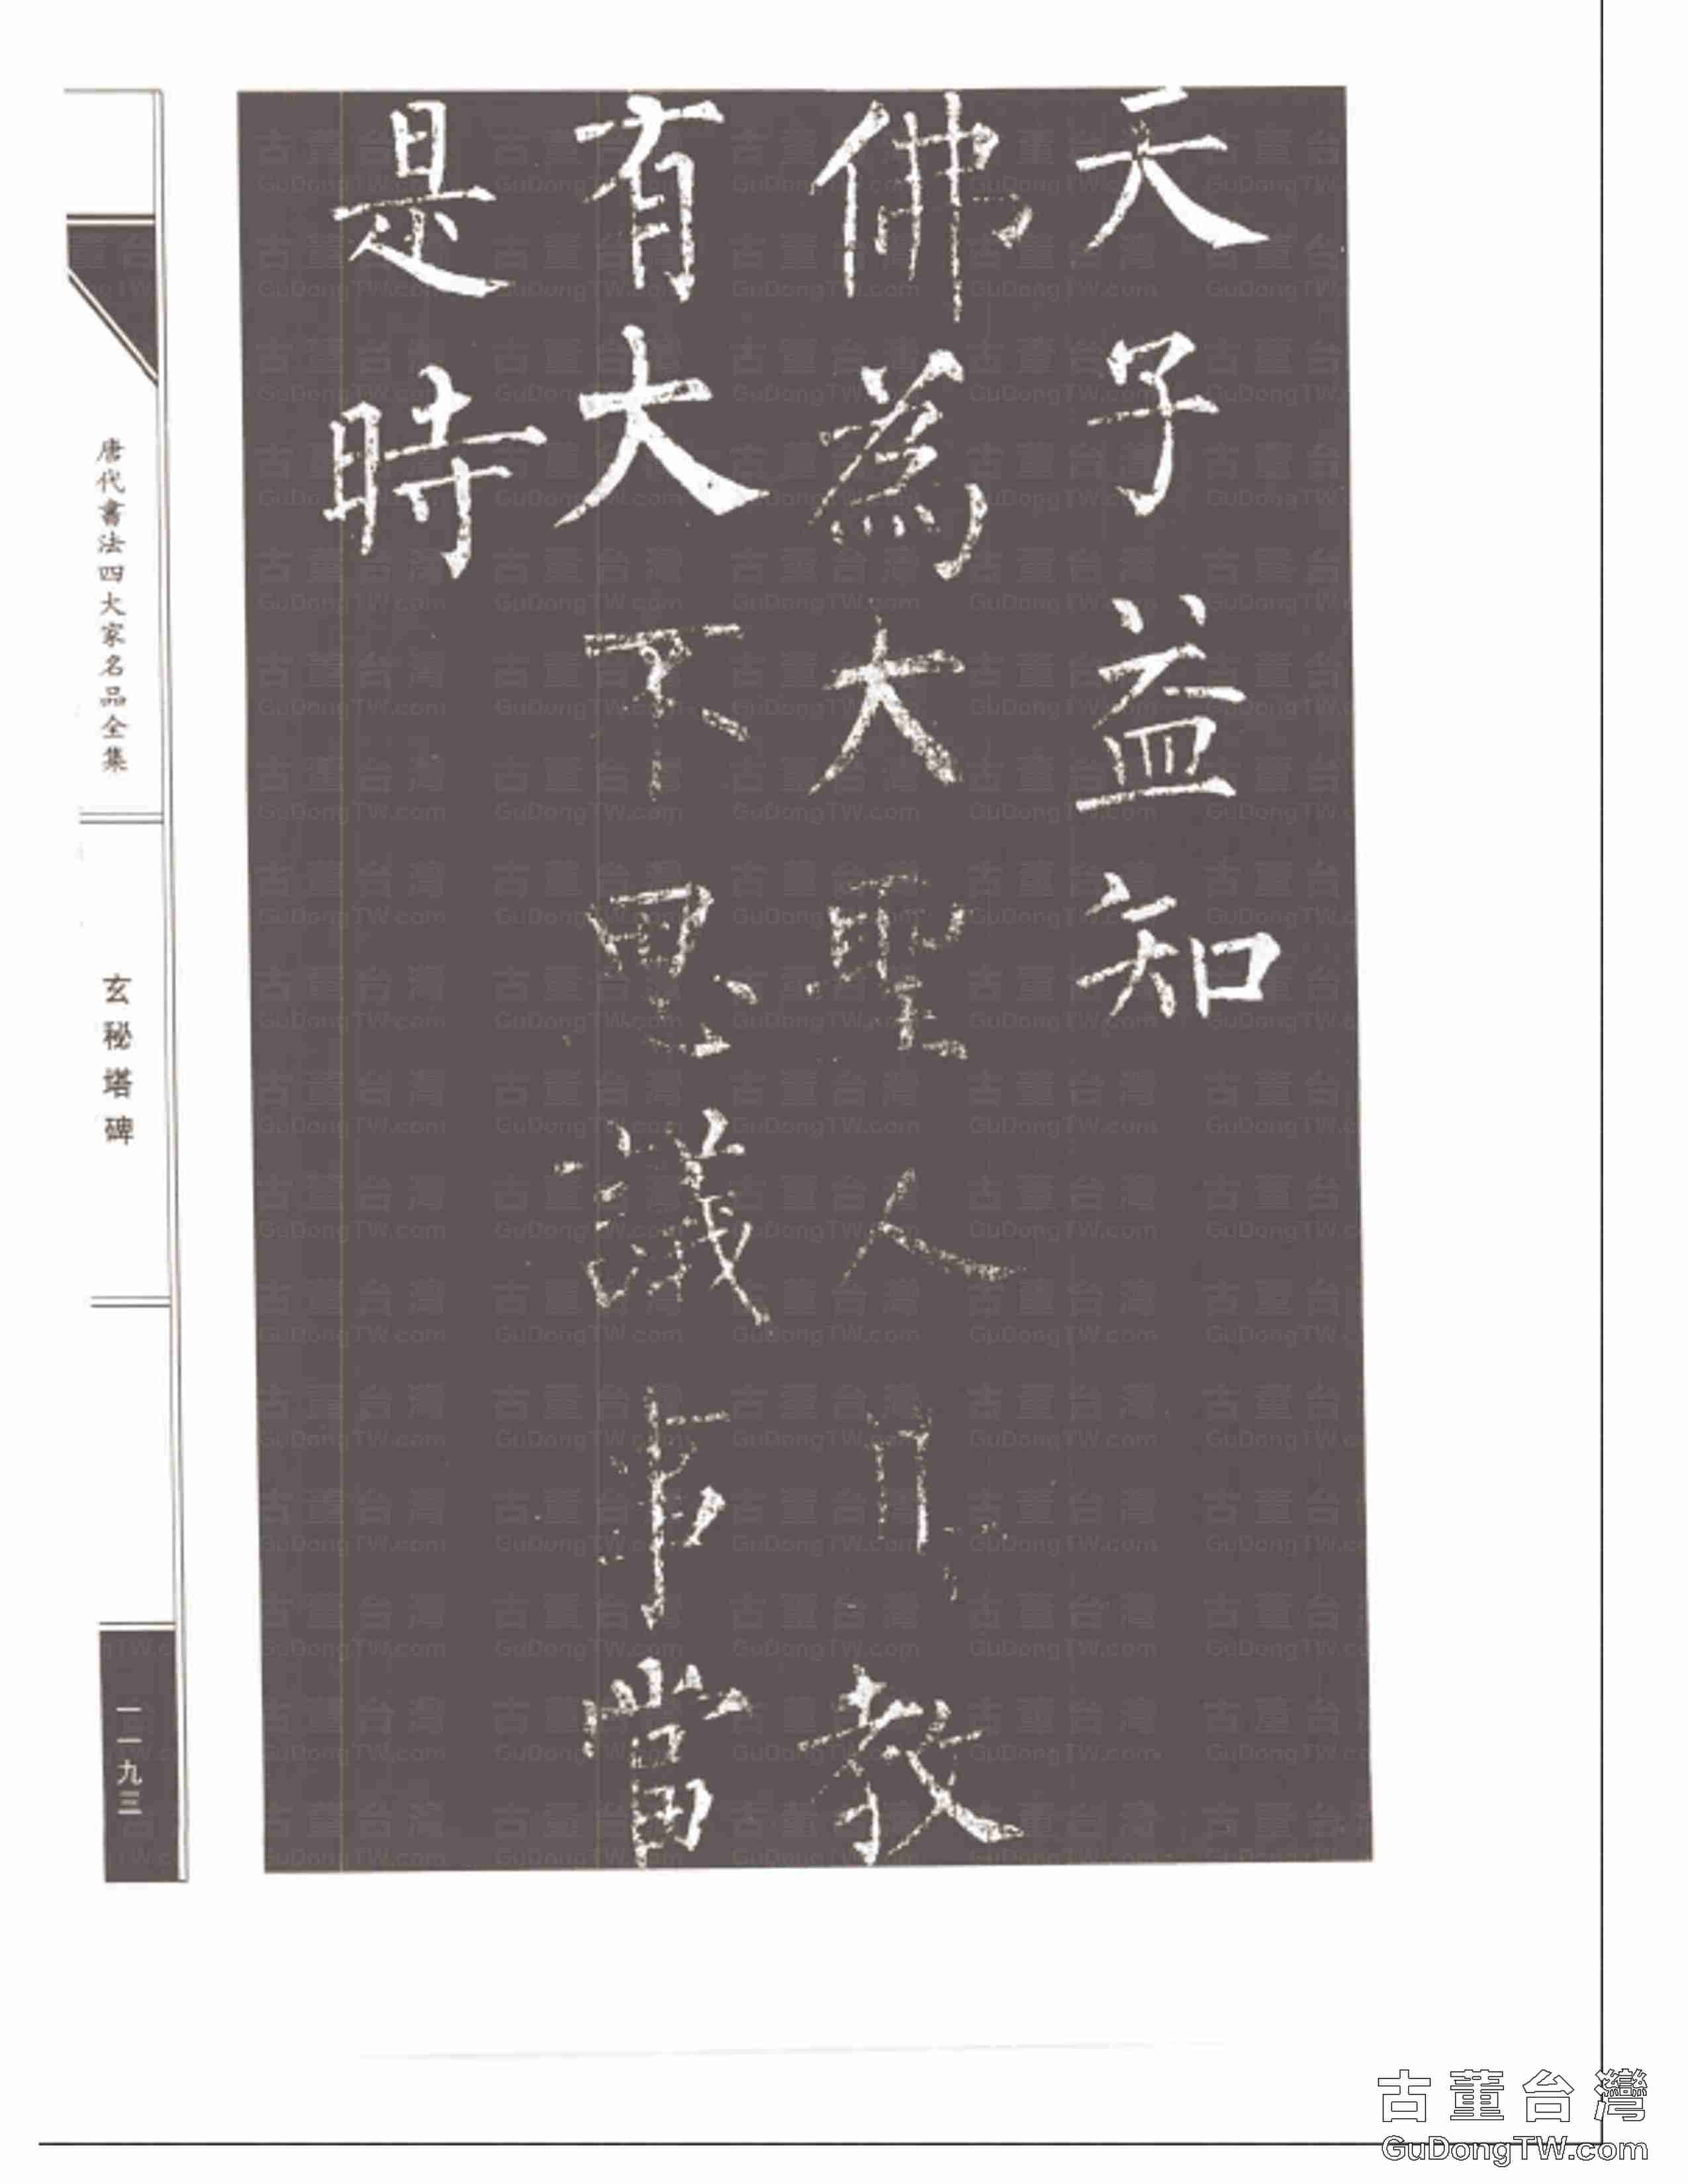 天子益知
佛為大聖人教
有大不思議事當
是時
唐代書法四大家名品全集
玄秘塔碑
一一九三
古董台灣
GuDongTW.com